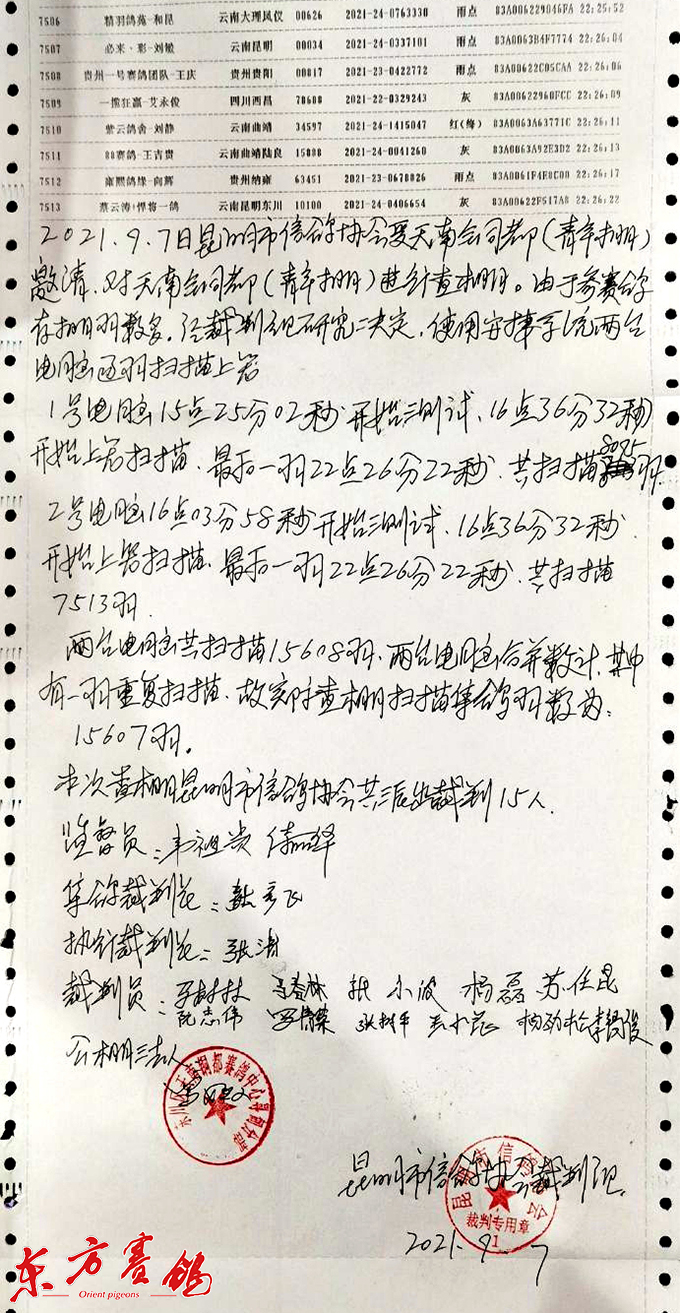 7506 精羽鸽苑-和昆 云南大理凤仪 00626 2021-24-0763330 雨点 83A006229046FA 22:25:52
7507 必来·彩-刘敏 云南昆明 00034 2021-24-0337101 雨点 83A0063B4F7774 22:26:04
7508 贵州一号赛鸽团队-王庆 贵州贵阳 00817 2021-23-0422772 雨点 83A00622C05CAA 22:26:06
7509 一搏狂赢-艾永俊 四川西昌 78608 2021-22-0329243 灰 83A00622960FCC 22:26:09
7510 紫云鸽舍-刘静 云南曲靖 34597 2021-24-1415047 红(绛) 83A0063A63771C 22:26:11
7511 88赛鸽-王吉贵 云南曲靖陆良 15088 2021-24-0041260 灰 83A0063A92E3D2 22:26:13
7512 雍熙鸽缘-向辉 贵州纳雍 63451 2021-23-0678826 雨点 83A0061F4E8C00 22:26:17
7513 蔡云涛+悍将一鸽 云南昆明东川 10100 2021-24-0406654 灰 83A00622F517A8 22:26:22
2021.9.7日昆明市信鸽协会受天南会司都(青年棚)
邀请.对天南会司都(青年棚)进行查棚。由于参赛鸽
存棚羽数多,经裁判组研究决定,使用安捷系统两台
电脑逐羽扫描上笼
1号电脑15点25分02秒开始测试、16点36分32秒
开始上笼扫描、最后一羽22点26分22秒.共扫描8095羽.
2号电脑16点03分58秒开始测试、16点36分32秒.
开始上笼扫描、最后一羽22点26分22秒、共扫描
7513羽.
两台电脑共扫描15608羽、两台电脑合并数计.其中
有一羽重复扫描、故实际查棚扫描集鸽羽数为:
15607羽.
本次查棚昆明市信鸽协会共派出裁判15人.
监督员:韦祖贵
集鸽裁判长:
执行裁判长:张涛
裁判员: 张小波 杨磊 苏任昆
阮志伟
公棚法人
东川区天南铜都赛鸽中心
昆明市信鸽协会裁判组.
昆明市信鸽协会
裁判专用章
1
2021.9.7
东方赛鸽
Orient pigeons